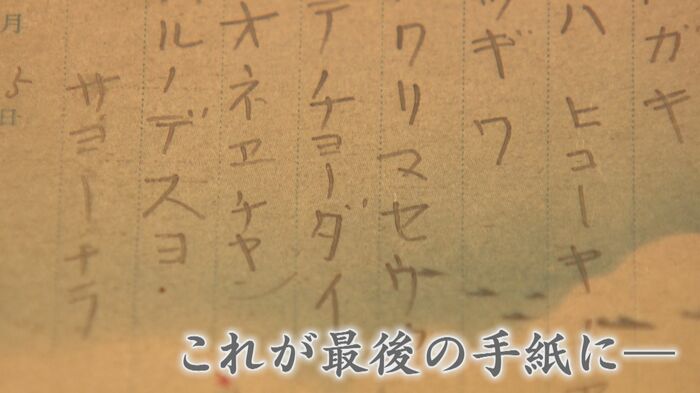 ガキ
ハ ヒコー
ギ ワ
ワリマセウ
テチョーダイ
オネヱチャン
ルノデスヨ.
サヨーナラ
月 5日
これが最後の手紙に―